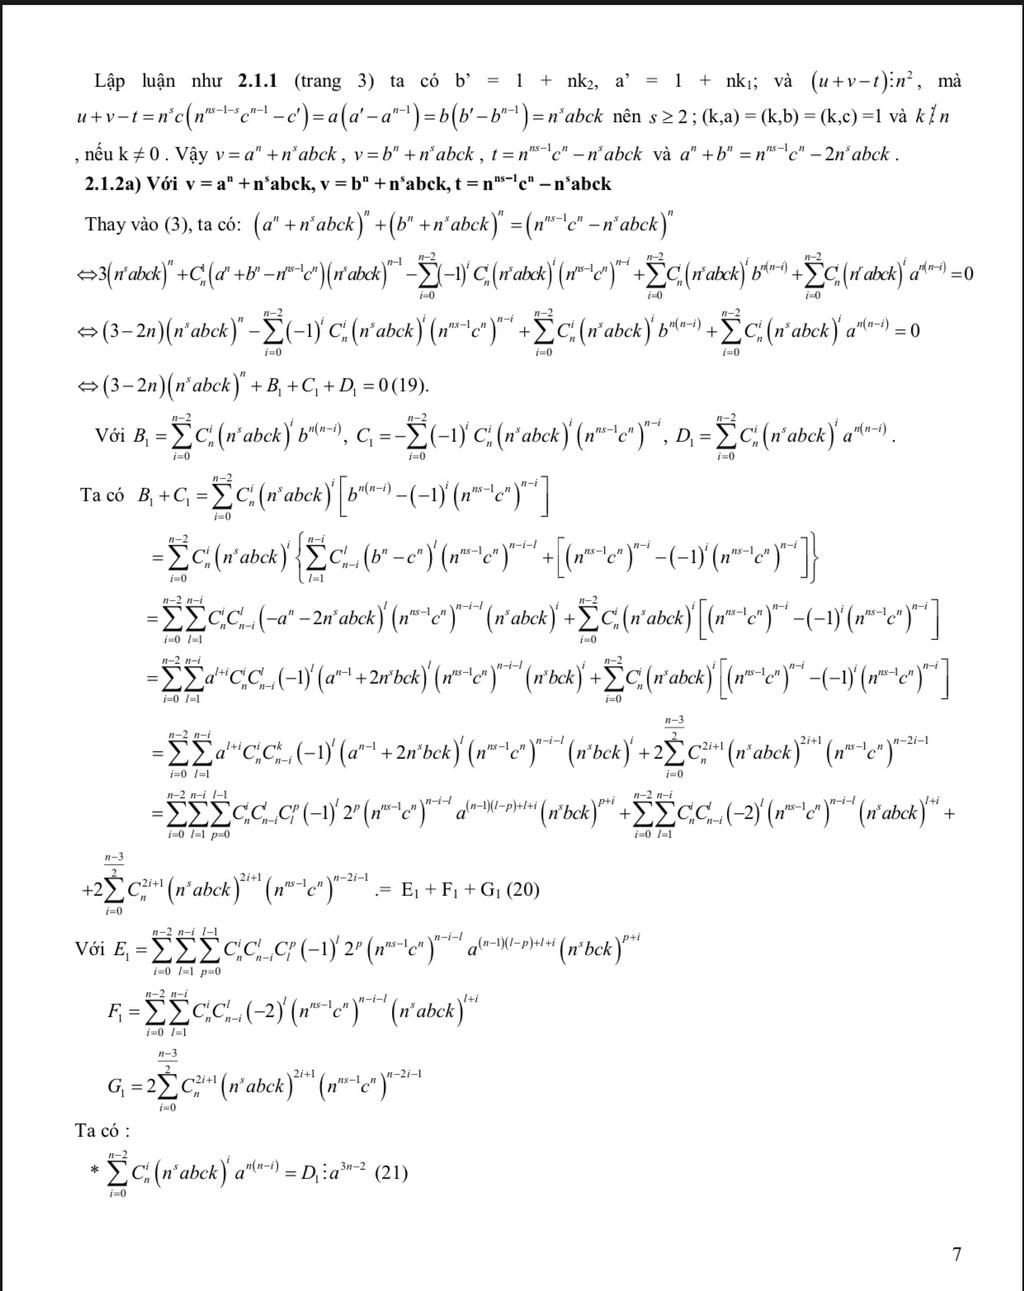 Lập luận như 2.1.1 (trang 3) ta có b’ = 1 + nk₂, a’ = 1 + nk₁; và (u+v−t)⋮n², mà
u+v−t = nˢc(n^{ns−1−s}c^{n−1} − c′) = a(a′ − a^{n−1}) = b(b′ − b^{n−1}) = nˢabck nên s ≥ 2 ; (k,a) = (k,b) = (k,c) =1 và k ⋮̸ n
, nếu k ≠ 0 . Vậy v = aⁿ + nˢabck , v = bⁿ + nˢabck , t = n^{ns−1}cⁿ − nˢabck và aⁿ + bⁿ = n^{ns−1}cⁿ − 2nˢabck .
2.1.2a) Với v = aⁿ + nˢabck, v = bⁿ + nˢabck, t = n^{ns−1}cⁿ − nˢabck
Thay vào (3), ta có: (aⁿ + nˢabck)ⁿ + (bⁿ + nˢabck)ⁿ = (n^{ns−1}cⁿ − nˢabck)ⁿ
⇔ 3(nˢabck)ⁿ + C_n^1(aⁿ + bⁿ − n^{ns−1}cⁿ)(nˢabck)^{n−1} − ∑_{i=0}^{n−2}(−1)^i C_n^i(nˢabck)^i(n^{ns−1}cⁿ)^{n−i} + ∑_{i=0}^{n−2}C_n^i(nˢabck)^i b^{n(n−i)} + ∑_{i=0}^{n−2}C_n^i(nˢabck)^i a^{n(n−i)} = 0
⇔ (3−2n)(nˢabck)ⁿ − ∑_{i=0}^{n−2}(−1)^i C_n^i(nˢabck)^i(n^{ns−1}cⁿ)^{n−i} + ∑_{i=0}^{n−2}C_n^i(nˢabck)^i b^{n(n−i)} + ∑_{i=0}^{n−2}C_n^i(nˢabck)^i a^{n(n−i)} = 0
⇔ (3−2n)(nˢabck)ⁿ + B₁ + C₁ + D₁ = 0 (19).
Với B₁ = ∑_{i=0}^{n−2}C_n^i(nˢabck)^i b^{n(n−i)}, C₁ = −∑_{i=0}^{n−2}(−1)^i C_n^i(nˢabck)^i(n^{ns−1}cⁿ)^{n−i}, D₁ = ∑_{i=0}^{n−2}C_n^i(nˢabck)^i a^{n(n−i)} .
Ta có B₁ + C₁ = ∑_{i=0}^{n−2}C_n^i(nˢabck)^i[b^{n(n−i)} − (−1)^i(n^{ns−1}cⁿ)^{n−i}]
= ∑_{i=0}^{n−2}C_n^i(nˢabck)^i{∑_{l=1}^{n−i}C_{n−i}^l(bⁿ − cⁿ)^l(n^{ns−1}cⁿ)^{n−i−l} + [(n^{ns−1}cⁿ)^{n−i} − (−1)^i(n^{ns−1}cⁿ)^{n−i}]}
= ∑_{i=0}^{n−2}∑_{l=1}^{n−i}C_n^i C_{n−i}^l(−aⁿ − 2nˢabck)^l(n^{ns−1}cⁿ)^{n−i−l}(nˢabck)^i + ∑_{i=0}^{n−2}C_n^i(nˢabck)^i[(n^{ns−1}cⁿ)^{n−i} − (−1)^i(n^{ns−1}cⁿ)^{n−i}]
= ∑_{i=0}^{n−2}∑_{l=1}^{n−i}a^{l+i}C_n^i C_{n−i}^l(−1)^l(a^{n−1} + 2nˢbck)^l(n^{ns−1}cⁿ)^{n−i−l}(nˢbck)^i + ∑_{i=0}^{n−2}C_n^i(nˢabck)^i[(n^{ns−1}cⁿ)^{n−i} − (−1)^i(n^{ns−1}cⁿ)^{n−i}]
= ∑_{i=0}^{n−2}∑_{l=1}^{n−i}a^{l+i}C_n^i C_{n−i}^k(−1)^l(a^{n−1} + 2nˢbck)^l(n^{ns−1}cⁿ)^{n−i−l}(nˢbck)^i + 2∑_{i=0}^{(n−3)/2}C_n^{2i+1}(nˢabck)^{2i+1}(n^{ns−1}cⁿ)^{n−2i−1}
= ∑_{i=0}^{n−2}∑_{l=1}^{n−i}∑_{p=0}^{l−1}C_n^i C_{n−i}^l C_l^p(−1)^l 2^p(n^{ns−1}cⁿ)^{n−i−l} a^{(n−1)(l−p)+l+i}(nˢbck)^{p+i} + ∑_{i=0}^{n−2}∑_{l=1}^{n−i}C_n^i C_{n−i}^l(−2)^l(n^{ns−1}cⁿ)^{n−i−l}(nˢabck)^{l+i} +
+2∑_{i=0}^{(n−3)/2}C_n^{2i+1}(nˢabck)^{2i+1}(n^{ns−1}cⁿ)^{n−2i−1} .= E₁ + F₁ + G₁ (20)
Với E₁ = ∑_{i=0}^{n−2}∑_{l=1}^{n−i}∑_{p=0}^{l−1}C_n^i C_{n−i}^l C_l^p(−1)^l 2^p(n^{ns−1}cⁿ)^{n−i−l} a^{(n−1)(l−p)+l+i}(nˢbck)^{p+i}
F₁ = ∑_{i=0}^{n−2}∑_{l=1}^{n−i}C_n^i C_{n−i}^l(−2)^l(n^{ns−1}cⁿ)^{n−i−l}(nˢabck)^{l+i}
G₁ = 2∑_{i=0}^{(n−3)/2}C_n^{2i+1}(nˢabck)^{2i+1}(n^{ns−1}cⁿ)^{n−2i−1}
Ta có :
* ∑_{i=0}^{n−2}C_n^i(nˢabck)^i a^{n(n−i)} = D₁⋮a^{3n−2} (21)
7